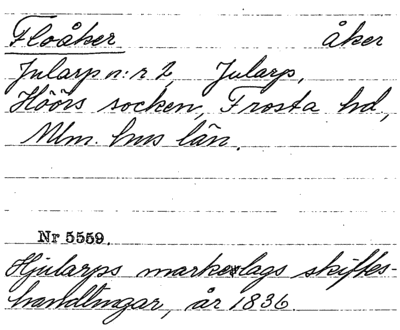 Floåker åker
Jularp n:r 2, Jularp,
Höörs socken, Frosta hd,
Mlm. hus län.
Nr 5559.
Hjularps markeslags skiftes-
handlingar, år 1836.